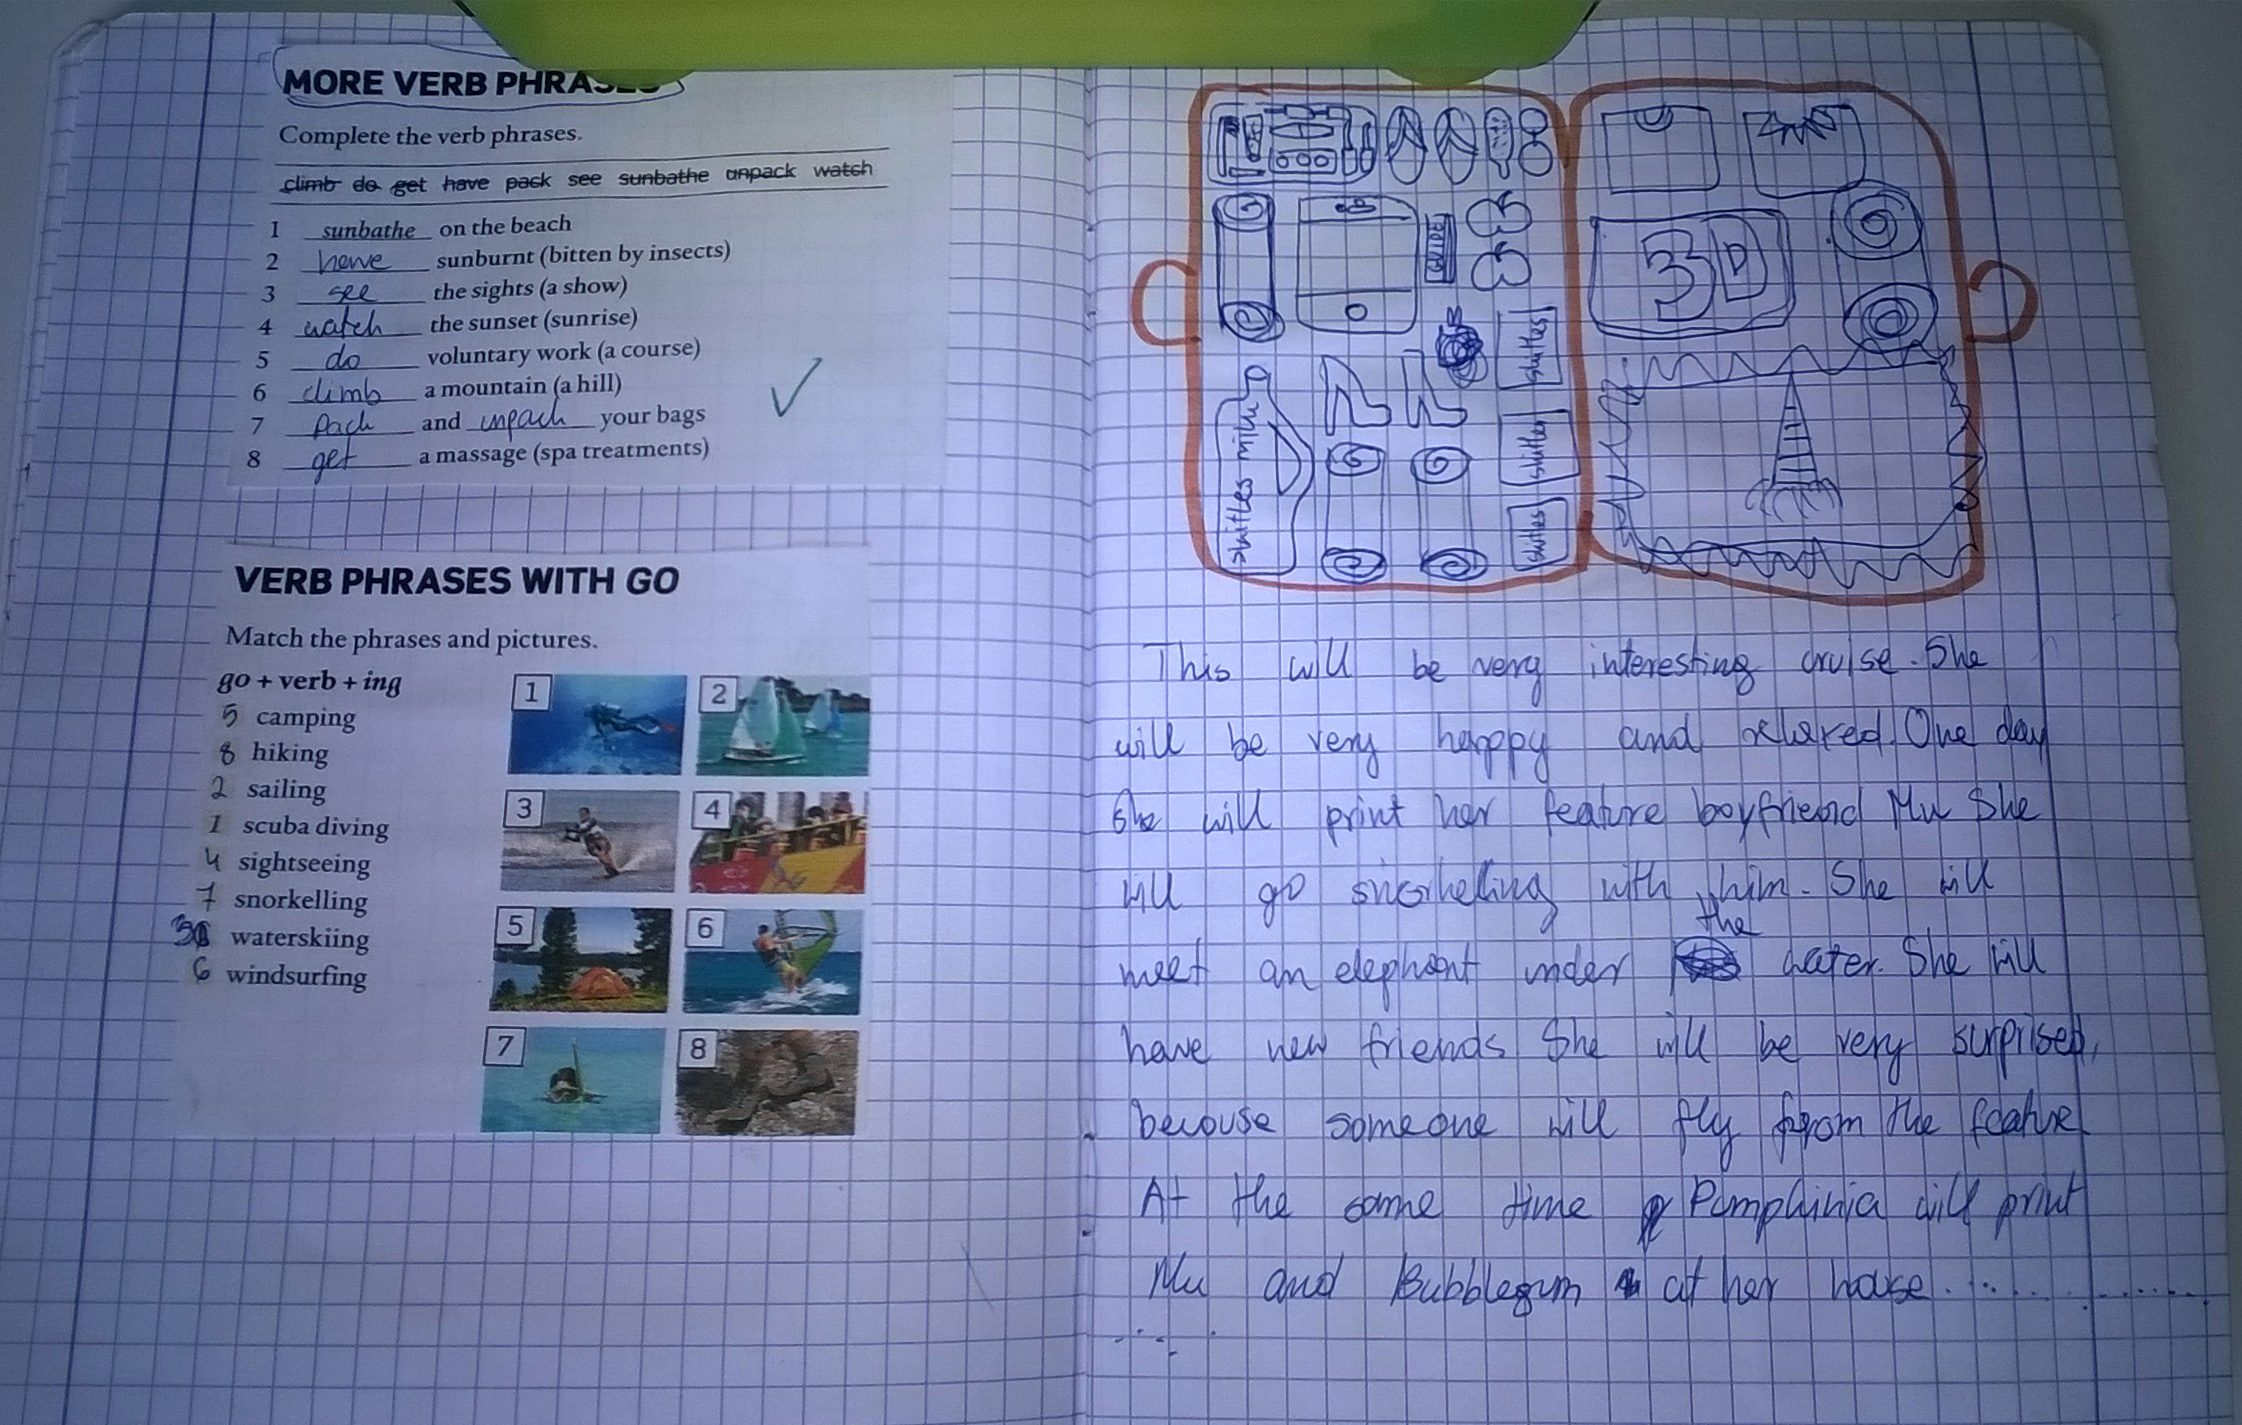 MORE VERB PHRASES
Complete the verb phrases.
climb do get have pack see sunbathe unpack watch
1 sunbathe on the beach
2 have sunburnt (bitten by insects)
3 see the sights (a show)
4 watch the sunset (sunrise)
5 do voluntary work (a course)
6 climb a mountain (a hill)
7 Pack and unpack your bags
8 get a massage (spa treatments)
VERB PHRASES WITH GO
Match the phrases and pictures.
go + verb + ing
5 camping
8 hiking
2 sailing
1 scuba diving
4 sightseeing
7 snorkelling
3 waterskiing
6 windsurfing
1
2
3
4
5
6
7
8
3D
skitles
skitles
skitles
skitles milk
This will be very interesting cruise. She
will be very happy and relaxed. One day
She will print her feature boyfriend Mu She
will go snorkelling with him. She will
the
meet an elephant under water. She will
have new friends She will be very surprised,
becouse someone will fly from the feature
At the same time Pumpkinia will print
Mu and Bubblegum at her house..........